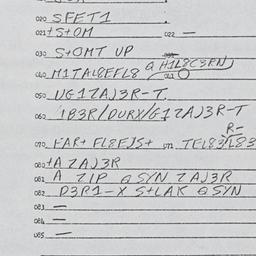 020 SFET1
021 +S+OM 022 —
030 S+OMT UP
040 M1TAL8EFL8 @ H1L8C3RN) 041
050 UG1ZAJ3R-T.
060 1B3R/DURX/G1ZAJ3R-T
R-
070 FAR+ FL8EJS+ 071 TEL83/L83
080 +A ZAJ3R
081 A ZIP @SYN ZAJ3R
082 D3R1-X S+LAK @SYN
083 —
084 —
085 —